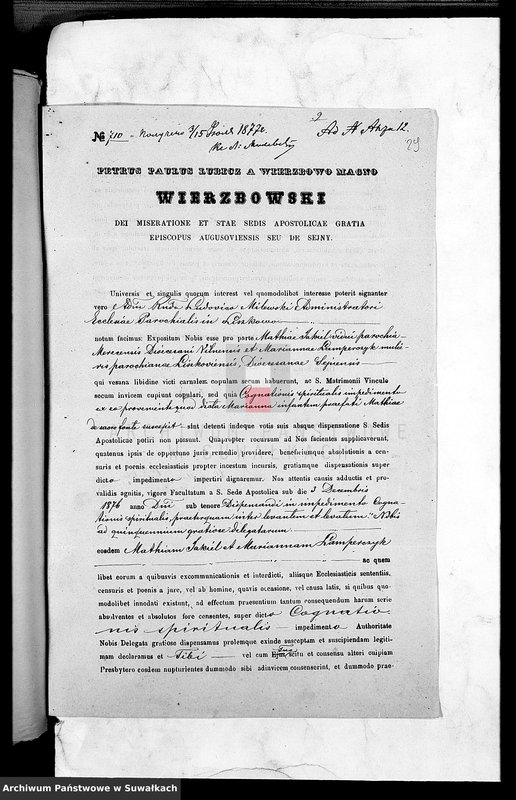 № 710
Ad № Akt 12.
29
PETRUS PAULUS LUBICZ A WIERZBOWO MAGNO
WIERZBOWSKI
DEI MISERATIONE ET STAE SEDIS APOSTOLICAE GRATIA
EPISCOPUS AUGUSOVIENSIS SEU DE SEJNY.
Universis et singulis quorum interest vel quomodolibet interesse poterit signanter
vero Adm Rndo Ludovico Milewski Administratori
Ecclesiae Parochialis in Liszkowo
notum facimus: Expositum Nobis esse pro parte Mathiae Jakiel vidui parochia
Merecensis Dioecesani Vilnensis et Mariannae Lamperczyk muli-
ris parochianae Liszkoviensis, Dioecesanae Sejnensis
qui vesana libidine victi carnalem copulam secum habuerunt, ac S. Matrimonii Vinculo
secum invicem cupiunt copulari, sed quia Cognationis spiritualis impedimento
ex eo proveniente quod dicta Marianna infantem praefati Mathiae
de sacro fonte suscepit sint detenti indeque votis suis absque dispensatione S. Sedis
Apostolicae potiri non possunt. Quapropter recursum ad Nos facientes supplicaverunt,
quatenus ipsis de opportuno juris remedio providere, beneficiumque absolutionis a cen-
suris et poenis ecclesiasticis propter incestum incursis, gratiamque dispensationis super
dicto impedimento impertiri dignaremur. Nos attentis causis adductis et pro-
validis agnitis, vigore Facultatum a S. Sede Apostolica sub die 3 Decembris
1876 anno Dni sub tenore: Dispensandi in impedimento Cogna-
tionis spiritualis, praeterquam inter levantem et levatum" Nobis
ad quinquennium gratiose delegatarum
eosdem Mathiam Jakiel et Mariannam Lamperczyk
ac quem
libet eorum a quibusvis excommunicationis et interdicti, aliisque Ecclesiasticis sententiis,
censuris et poenis a jure, vel ab homine, quavis occasione, vel causa latis, si quibus quo-
modolibet innodati existunt, ad effectum praesentium tantum consequendum harum serie
absolventes et absolutos fore censentes, super dicto Cognatio
nis spiritualis impedimento Authoritate
Nobis Delegata gratiose dispensamus prolemque exinde susceptam et suscipiendam legiti-
mam declaramus et Tibi vel cum Tuo scitu et consensu alteri cuipiam
Presbytero eosdem nupturientes dummodo sibi adinvicem consenserint, et dummodo prae-
Archiwum Państwowe w Suwałkach